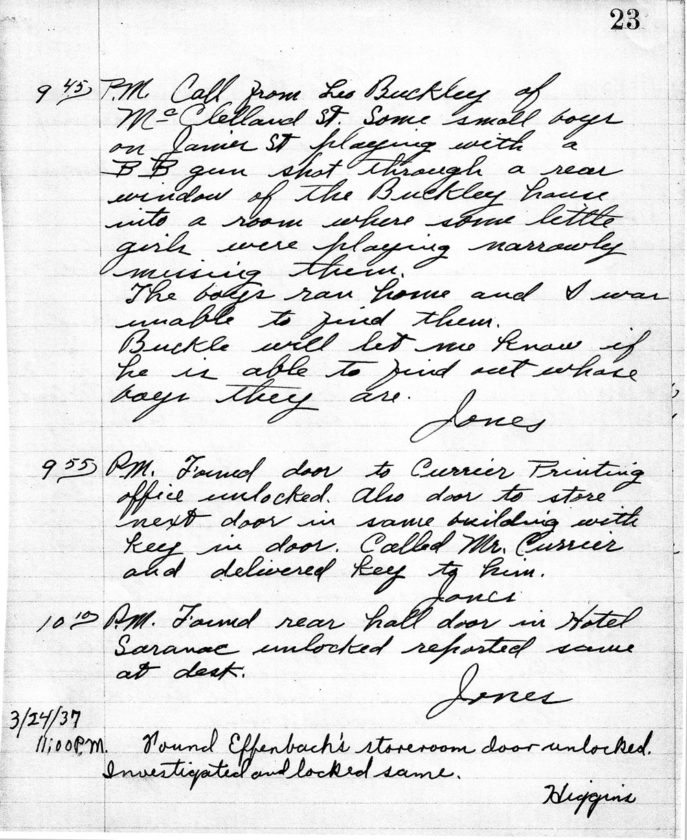 23
9 45 P.M. Call from Leo Buckley of
McClelland St. Some small boys
on St playing with a
B B gun shot through a rear
window of the Buckley house
into a room where some little
girls were playing narrowly
missing them.
The boys ran home and I was
unable to find them.
Buckle will let me know if
he is able to find out whose
boys they are.
Jones
9 55 P.M. Found door to Currier Printing
office unlocked. Also door to store
next door in same building with
key in door. Called Mr. Currier
and delivered key to him.
Jones
10 10 P.M. Found rear hall door in Hotel
Saranac unlocked reported same
at desk.
Jones
3/24/37
11:00 P.M. Found Effenbach's storeroom door unlocked.
Investigated and locked same.
Higgins